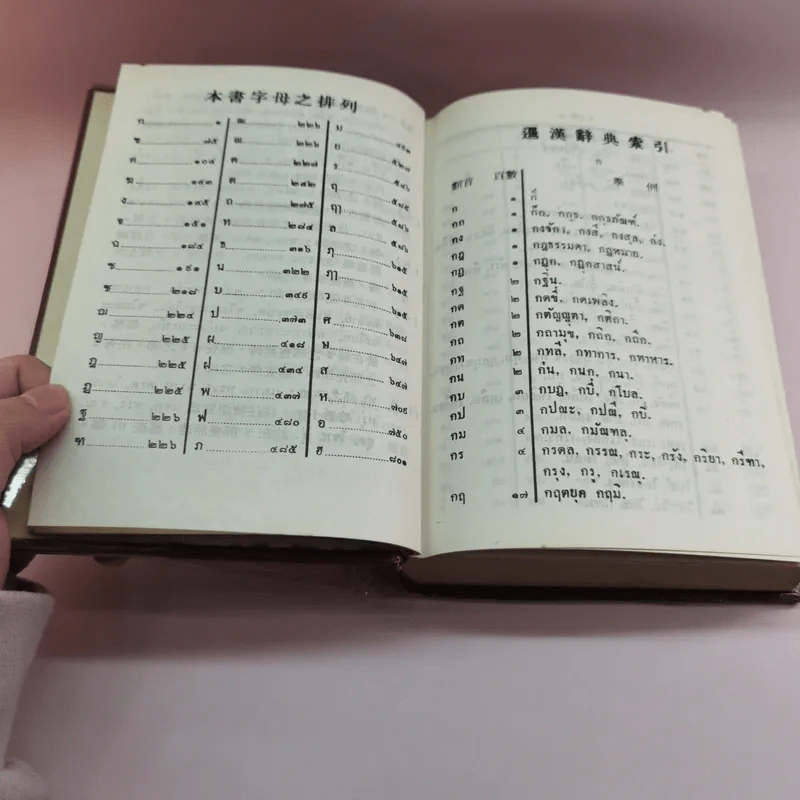 本書字母之排列
ก ๑
ข ๗๕
ค ๑๐๔
ฆ ๑๔๓
ง ๑๔๕
จ ๑๕๑
ฉ ๑๘๔
ช ๑๙๑
ซ ๒๑๘
ฌ ๒๒๔
ญ ๒๒๕
ฎ ๒๒๕
ฏ ๒๒๕
ฐ ๒๒๖
ฑ ๒๒๖
ฒ ๒๒๖
ณ ๒๒๖
ด ๒๒๗
ต ๒๔๒
ถ ๒๗๕
ท ๒๘๔
ธ ๓๑๖
น ๓๒๒
บ ๓๔๙
ป ๓๗๓
ผ ๔๑๘
ฝ ๔๓๔
พ ๔๓๗
ฟ ๔๘๐
ภ ๔๘๕
ม
ย
ร
ฤ
ฤๅ
ล
ฦ ๖๑๕
ฦๅ ๖๑๕
ว ๖๑๕
ศ ๖๓๘
ษ ๖๔๗
ส ๖๔๗
ห ๗๐๔
อ ๗๕๐
ฮ ๘๐๑
暹漢辭典索引
ก
類首 頁數 舉例
ก ๑ ก็
กก ๑ กัก, กกุธ, กกุธภัณฑ์.
กง ๑ กงจักา, กงสี, กงสุล, ก่ง.
กฎ ๑ กฎธรรมดา, กฎหมาย.
กฏ ๑ กฏุก, กฏุกสาสน์.
กฐ ๒ กฐิน.
กด ๒ กดขี่, กดเพลิง.
กต ๒ กตัญญุตา, กติกา.
กถ ๒ กถามุข, กถิก, กถึก.
กท ๒ กทลี, กทาการ, กทาหาร.
กน ๒ ก่น, กนก, กนา.
กบ ๓ กบฏ, กบี่, กโบล.
กป ๓ กปณะ, กปณี, กปิ.
กม ๔ กมล, กมัณฑลุ.
กร ๔ กรดล, กรรณ, กระ, กรัง, กริยา, กรีฑา,
กรุง, กรู, กเรณุ.
กฤ ๑๗ กฤตยุค กฤมิ.